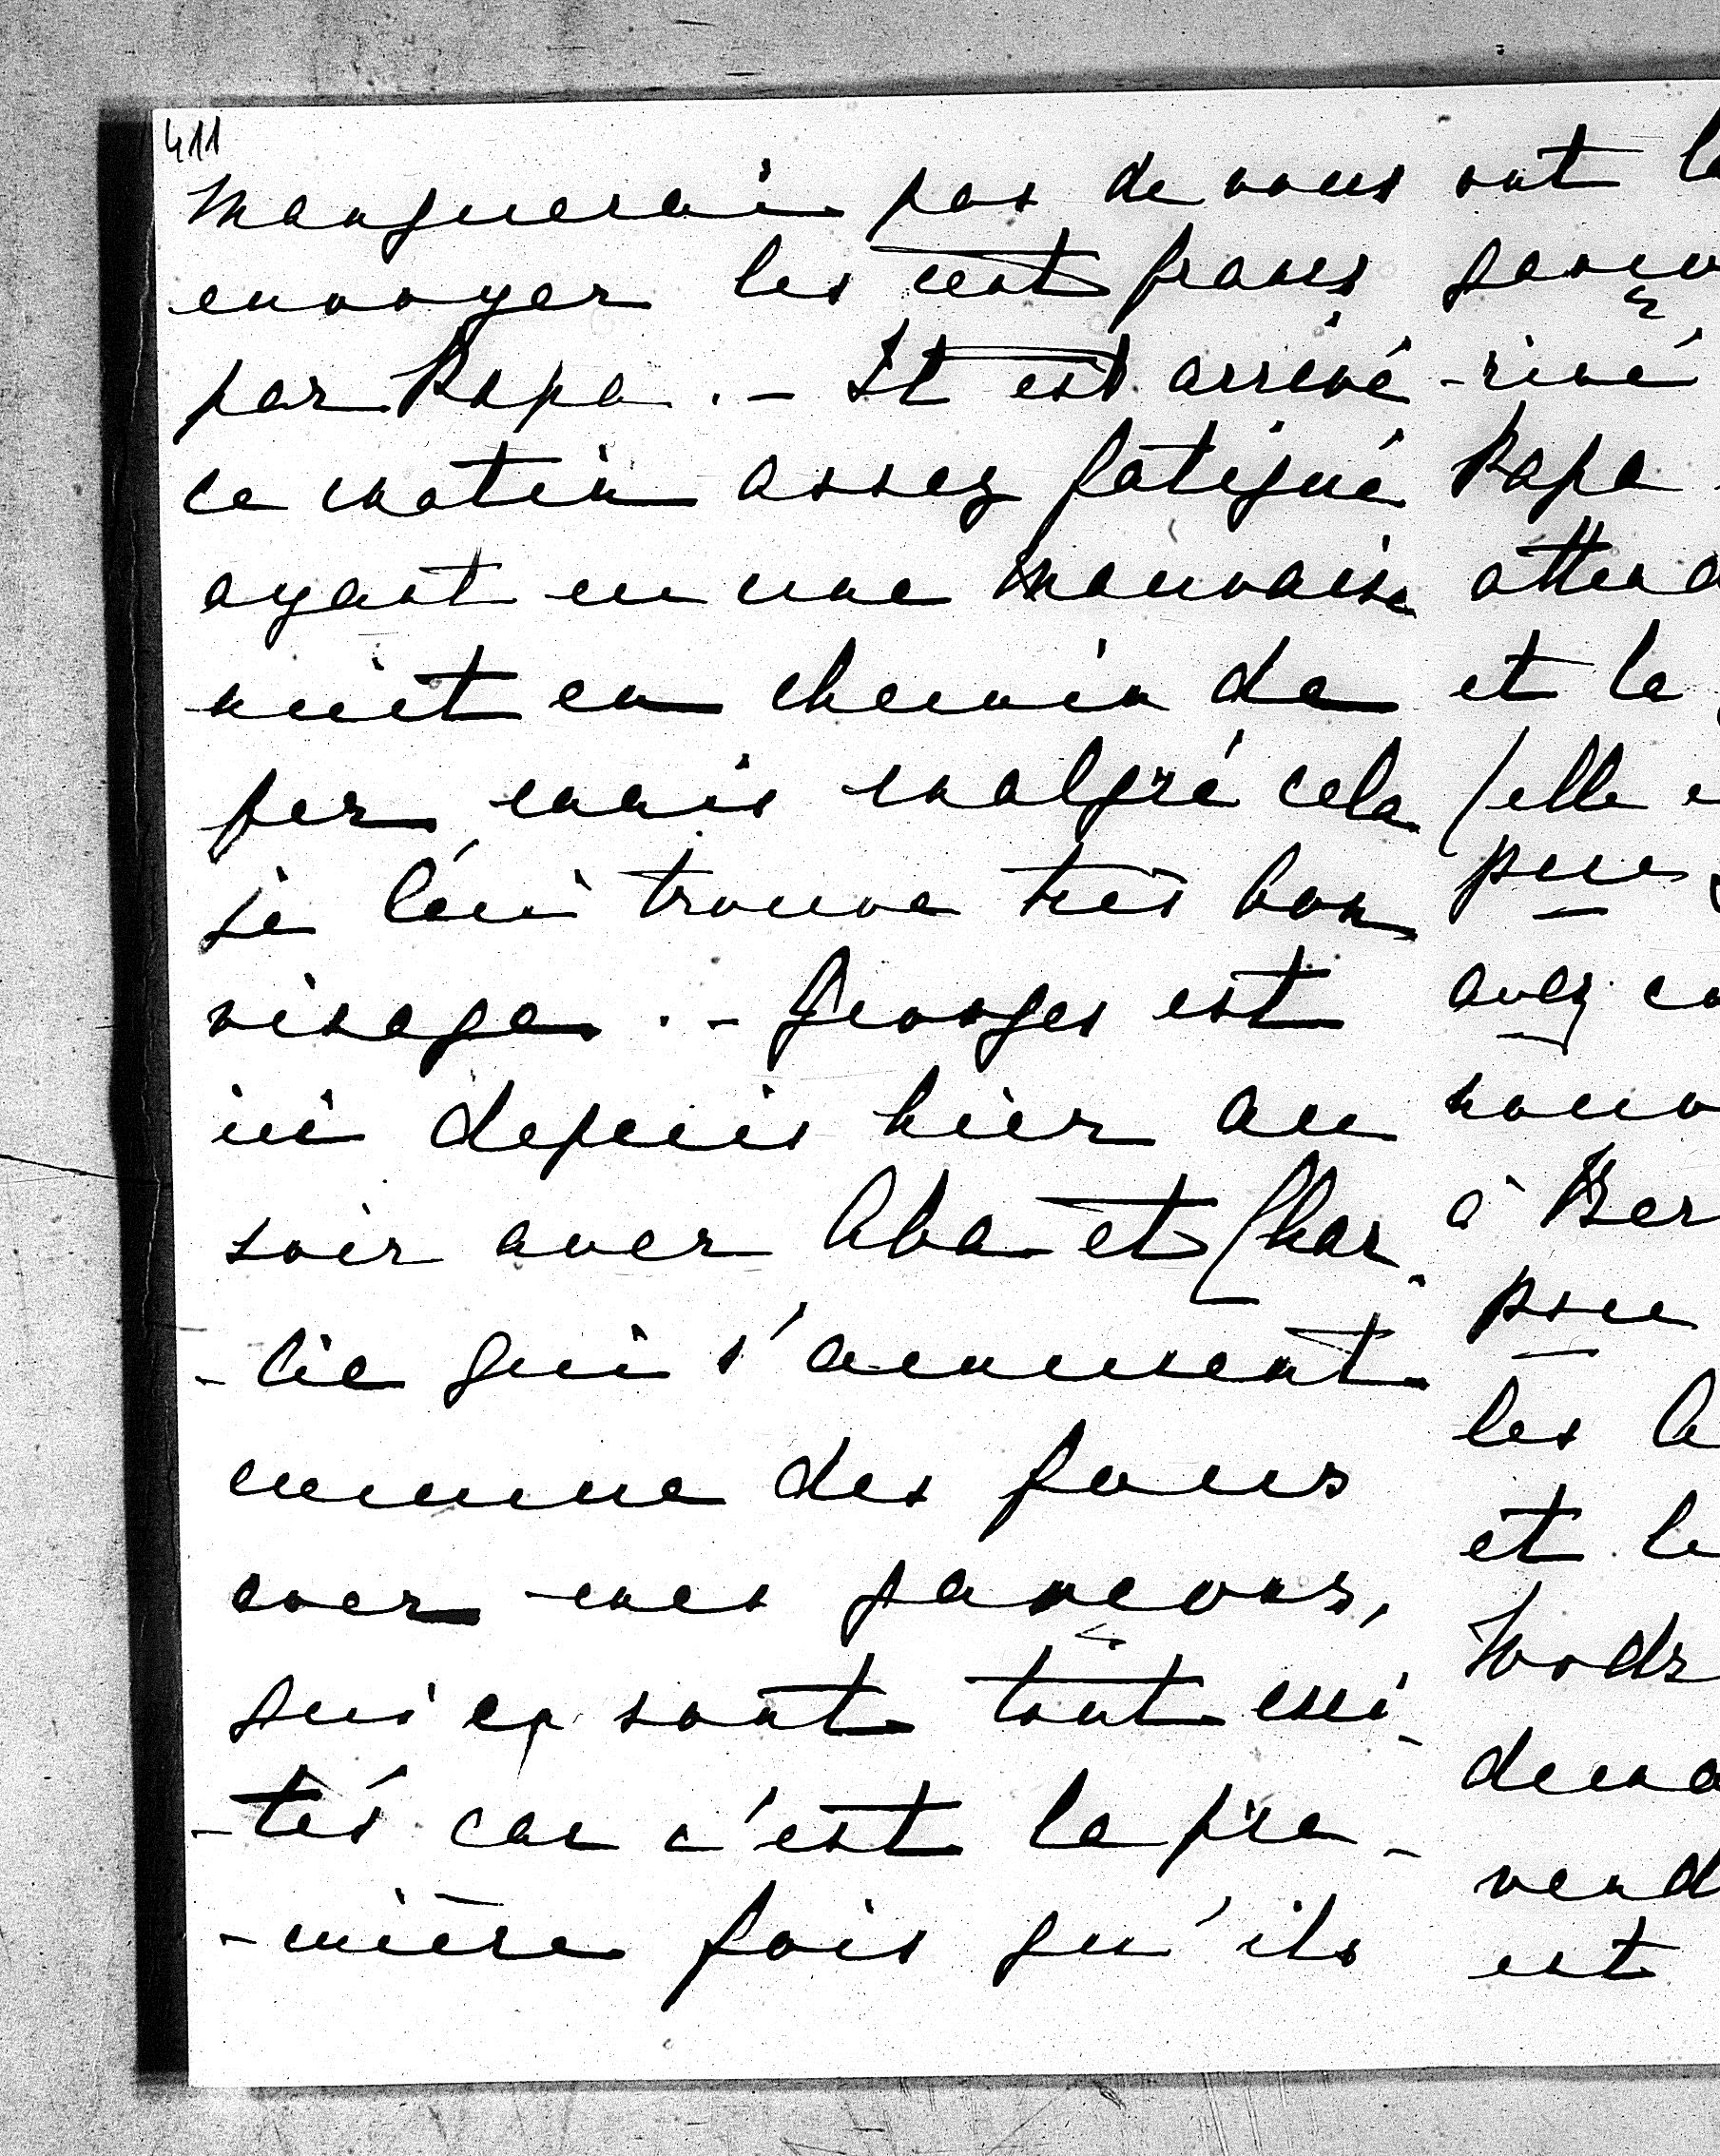 411
manquerai pas de vous
envoyer les cent francs
par Papa. – Il est arrivé
ce matin assez fatigué
ayant eu une mauvaise
nuit en chemin de
fer mais malgré cela
je lui trouve très bon
visage. – Georges est
ici depuis hier au
soir avec Aba et Char-
-lie qui s'amusent
comme des fous
avec mes garçons,
qui en sont tout exci-
-tés car c'est la pre-
-mière fois qu'ils
ont
-rivé
Papa
et le
(elle
avez
à
les
et
est